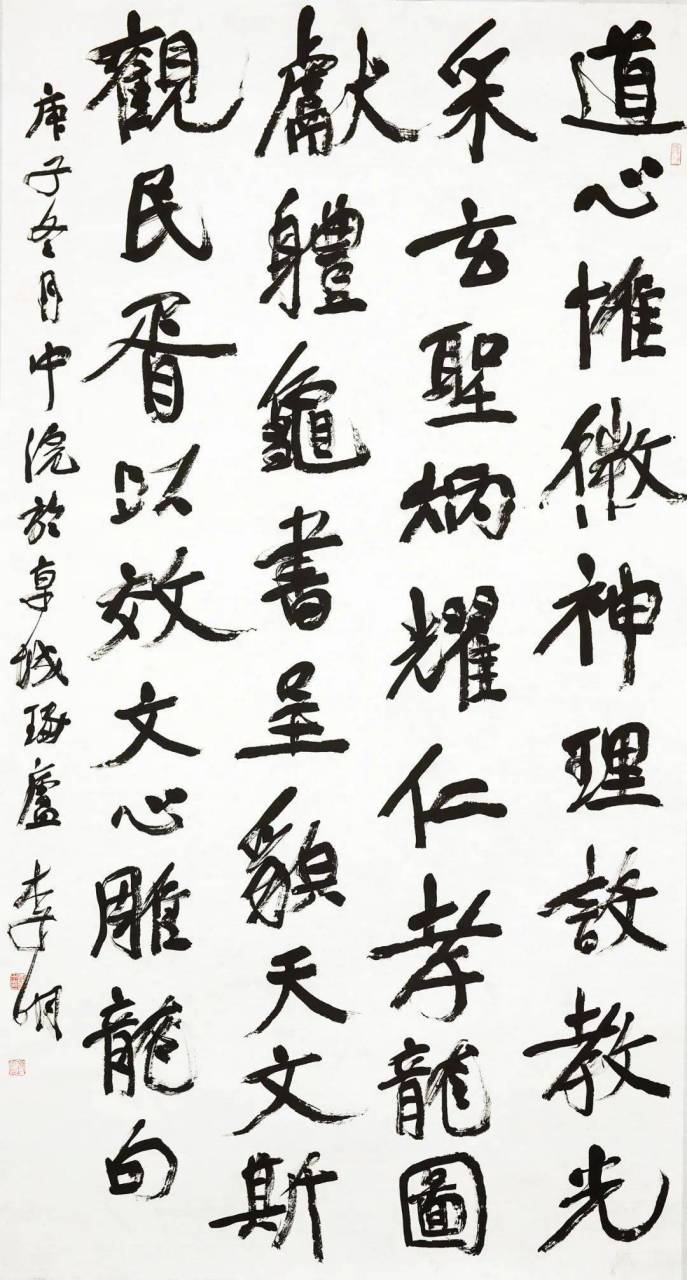 道心惟微神理設教光
采玄聖炳耀仁孝龍圖
獻體龜書呈貌天文斯
觀民胥以效文心雕龍句
庚子冬月中浣於阜城琢廬李明